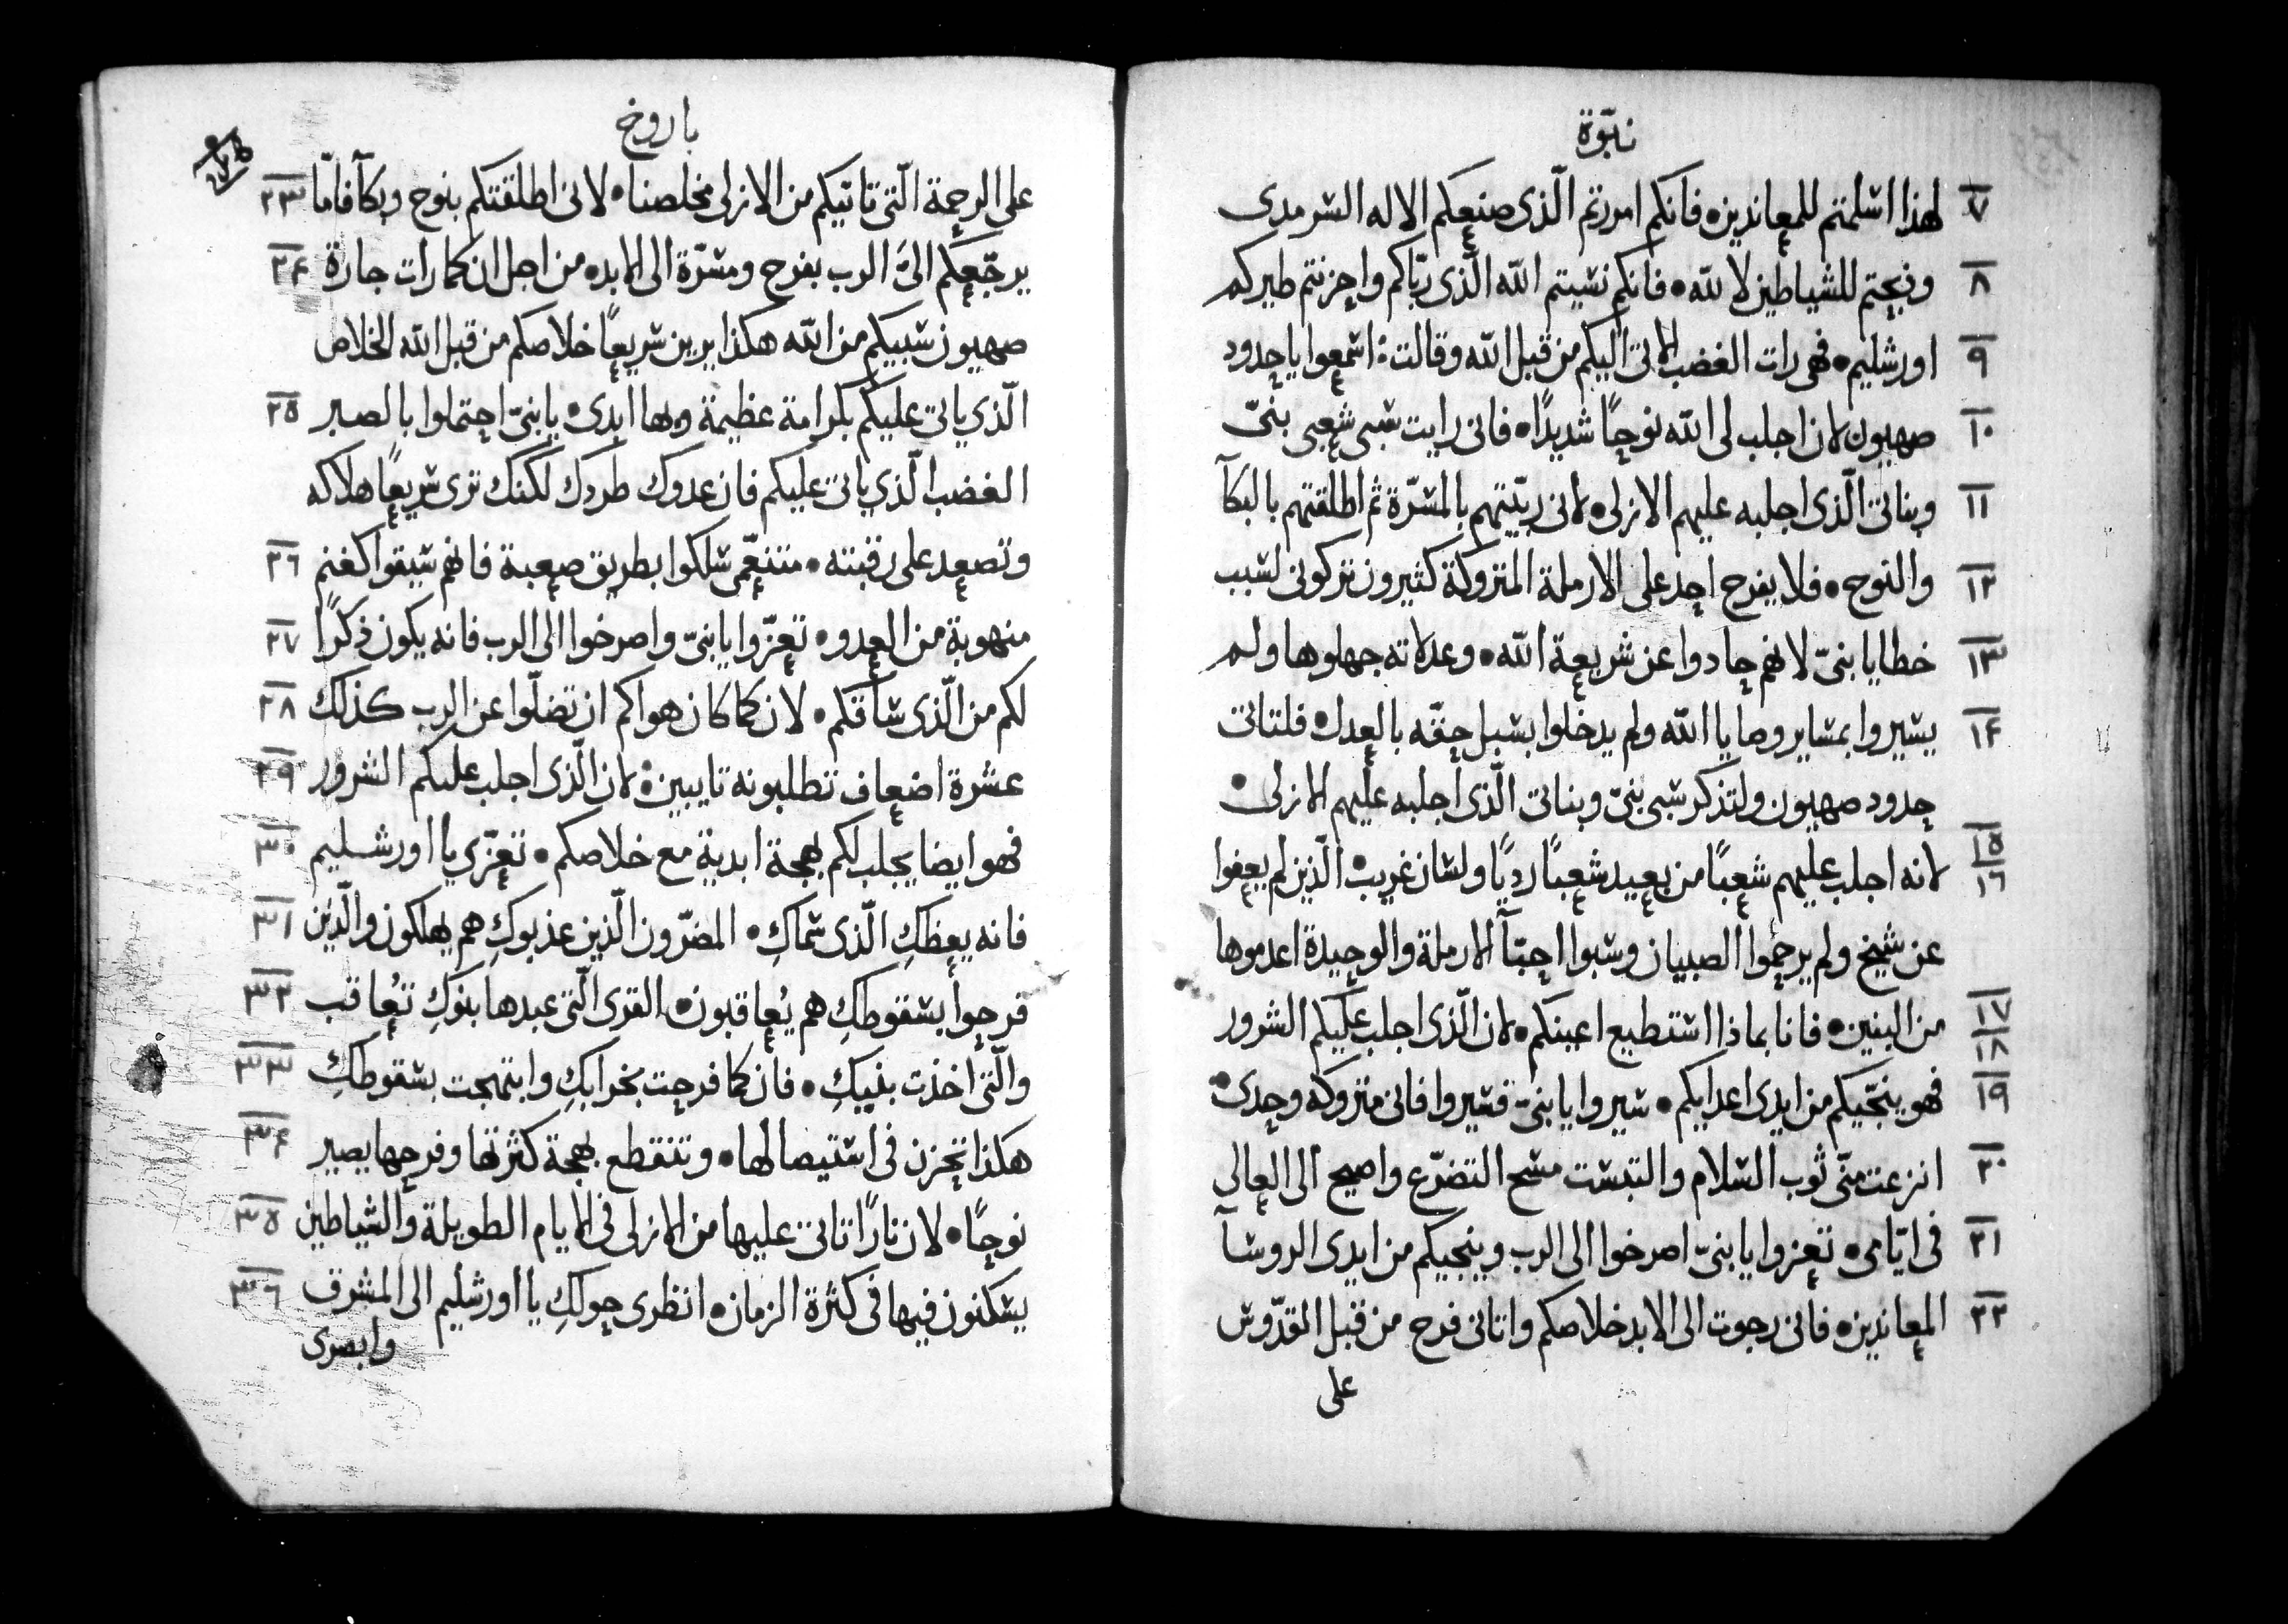 نبوّة
٧ لهذا اسلمتم للمعاندين • فانكم امررتم الّذى صنعكم الاله السرمدى
٨ وذبحتم للشياطين لا لله • فانكم نسيتم الله الّذى ربّاكم واحزنتم طيركم
٩ اورشليم • فهى رات الغضب الاتى اليكم من قبل الله وقالت اسمعوا يا حدود
١٠ صهيون لان اجلب لى الله نوحًا شديدًا • فانى رايت سبى شعبى بنىّ
١١ وبناتى الّذى اجلبه عليهم الازلى • لانى ربّيتهم بالمسرّة ثم اطلقتهم بالبكآ
١٢ والنوح • فلا يفرح احد على الارملة المتروكة كثيرون تركونى لسبب
١٣ خطايا بنىّ لانهم حادوا عن شريعة الله • وعدلاته جهلوها ولم
١٤ يسيروا بمساير وصايا الله ولم يدخلوا بسبل حقّه بالعدل • فلتاتى
حدود صهيون ولتذكر سبى بنىّ وبناتى الّذى اجلبه عليهم الازلى •
١٥ ١٦ لانه اجلب عليهم شعبًا من بعيد شعبًا رديًا ولسان غريب • الّذين لم يعفوا
عن شيخ ولم يرحموا الصبيان وسبوا احبّآ الارملة والوحيدة اعدموها
١٧ ١٨ من البنين • فانا بماذا استطيع اعينكم • لان الّذى اجلب عليكم الشرور
١٩ فهو ينجّيكم من ايدى اعدايكم • سيروا يا بنىّ فسيروا فانى متروكة وحدى •
٢٠ انزعت منّى ثوب السلام والتبست مسح التضرّع واصيح الى العالى
٢١ فى ايّامى • تعزوا يا بنىّ اصرخوا الى الرب وينجيكم من ايدى الروسآ
٢٢ المعاندين • فانى رجوت الى الابد خلاصكم واتانى فرح من قبل القدّوس
على
باروخ
على الرحمة الّتى تاتيكم من الازلى مخلصنا • لانى اطلقتكم بنوح وبكآ فامّا ٢٣
يرجّعكم الىّ الرب بفرح ومسرّة الى الابد • من اجل ان كما رات جارة ٢٤
صهيون سبيكم من الله هكذا يرين سريعًا خلاصكم من قبل الله الخلاص
الّذى ياتى عليكم بكرامة عظيمة وبها ابدى • يا بنىّ احتملوا بالصبر ٢٥
الغضب الّذى ياتى عليكم فان عدوك طردك لكنك ترى سريعًا هلاكه
وتصعد على رقبته • متنعّمى سلكوا بطريق صعبة فانهم سيقوا كغنم ٢٦
منهوبة من العدو • تعزّوا يا بنىّ واصرخوا الى الرب فانه يكون ذكرًا ٢٧
لكم من الّذى ساقكم • لان كما كان هواكم ان تضلّوا عن الرب كذلك ٢٨
عشرة اضعاف تطلبونه تايبين • لان الّذى اجلب عليكم الشرور ٢٩
فهو ايضا يجلب لكم بهجة ابدية مع خلاصكم • تعزّى يا اورشليم ٣٠
فانه يعظكِ الّذى سماكِ • المضرّون الّذين عذبوكِ هم يهلكون والّذين ٣١
فرحوا بسقوطكِ هم يُعاقبون • القرى الّتى عبدها بنوكِ تُعاقب ٣٢
والّتى اخذت بنيكِ • فان كما فرحت بخرابكِ وابتهجت بسقوطكِ ٣٣
هكذا تحزن فى استيصالها • وتنقطع بهجة كثرتها وفرحها يصير ٣٤
نوحًا • لان نارًا تاتى عليها من الازلى فى الايام الطويلة والشياطين ٣٥
يسكنون فيها فى كثرة الزمان • انظرى حولكِ يا اورشليم الى المشرق ٣٦
وابصرى